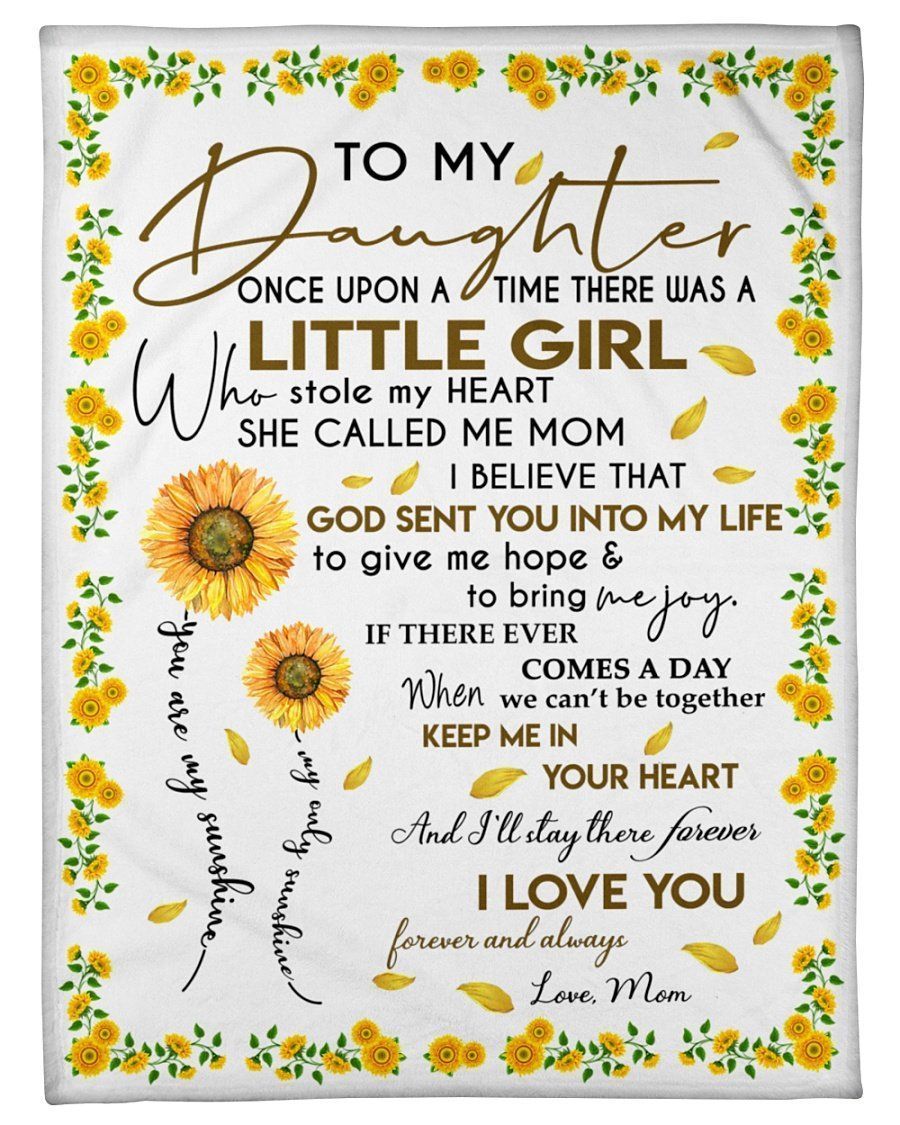 TO MY
Daughter
ONCE UPON A TIME THERE WAS A
LITTLE GIRL
Who stole my HEART
SHE CALLED ME MOM
I BELIEVE THAT
GOD SENT YOU INTO MY LIFE
to give me hope &
to bring me joy.
IF THERE EVER
COMES A DAY
When we can't be together
KEEP ME IN
YOUR HEART
And I'll stay there forever
I LOVE YOU
forever and always
Love, Mom
you are my sunshine
my only sunshine